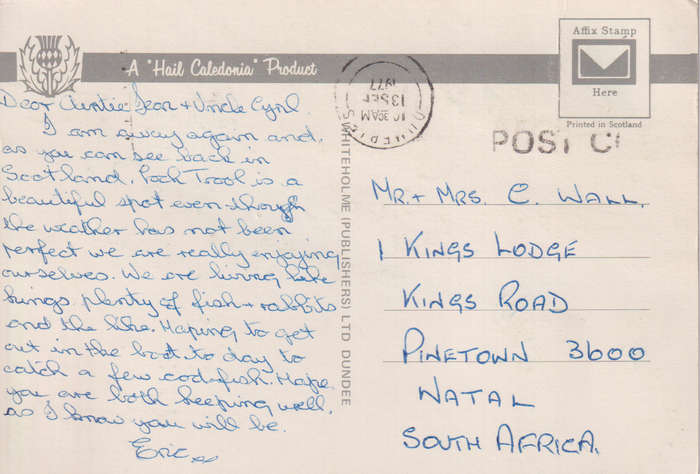 A "Hail Caledonia" Product
Affix Stamp
Here
Printed in Scotland
10 30AM
13 SEP
1977
POST C
Dear Auntie Jean + Uncle Cyril.
I am away again and,
as you can see back in
Scotland. Loch Trool is a
beautiful spot even though
the weather has not been
perfect we are really enjoying
ourselves. We are living like
kings plenty of fish + rabbits
and the like. Hoping to get
out in the boat to day to
catch a few codfish. Hope
you are both keeping well,
as I know you will be.
Eric xx
WHITEHOLME (PUBLISHERS) LTD DUNDEE
MR. + MRS. C. WALL.
1 KINGS LODGE
KINGS ROAD
PINETOWN 3600
NATAL
SOUTH AFRICA.